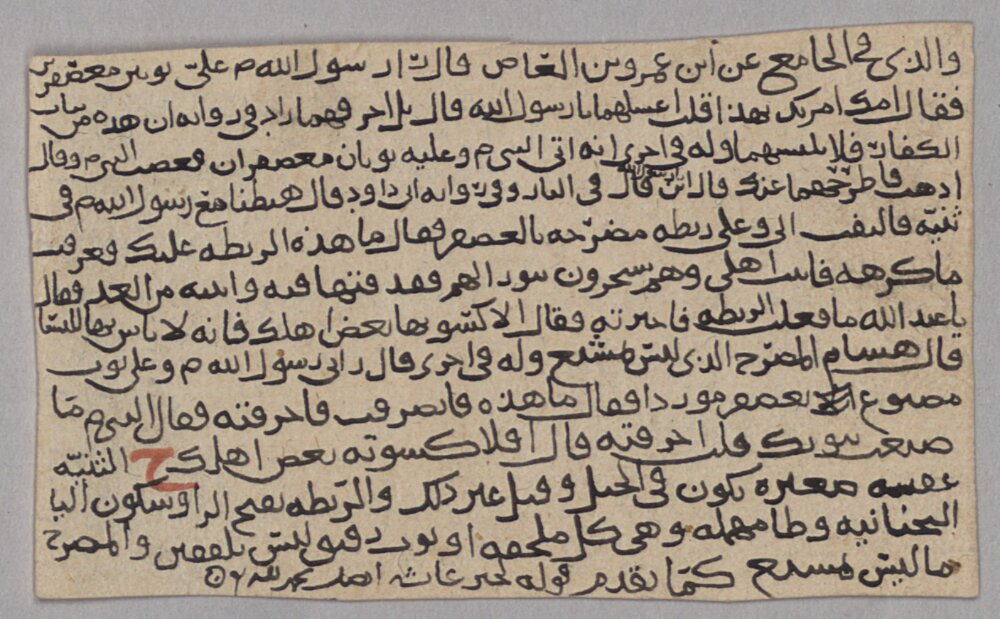 والذي في الجامع عن ابن عمرو بن العاص قال رأى رسول الله م عليّ ثوبين معصفرين
فقال امك امرتك بهذا قلت اغسلهما يا رسول الله قال بل احرقهما زاد في رواية ان هذه من ثياب
الكفار فلا تلبسهما وله في اخرى انه اتى النبي م وعليه ثوبان معصفران فغضب النبي م وقال
اذهب فاطرحهما عنك قال اين قال في النار وفي رواية ابي داود قال هبطنا مع رسول الله م في
ثنيّة فالتفت الي وعلي ريطه مضرّجه بالعصفر فقال ما هذه الريطه عليك فعرفت
ما كره فاتيت اهلي وهم يسجرون تنورا لهم فقذفتها فيه واتيته من الغد فقال
يا عبد الله ما فعلت الريطه فاخبرته فقال الا كسوتها بعض اهلك فانه لا باس بها للنسا
قال هشام المضرج الذي ليس بمشبع وله في اخرى قال راني رسول الله م وعلي ثوب
مصبوغ بعصفر موردا فقال ما هذه فانصرفت فاحرقته فقال النبي م ما
صنعت بثوبك قلت احرقته قال افلا كسوته بعض اهلك ح الثنيّه
عقبه صغيره تكون في الجبل وقيل غير ذلك والرّيطه بفتح الرا وسكون اليا
التحتانيه وطا مهمله وهي كل ملحفه او ثوب رقيق ليس بلفقين والمضرج
ما ليس بمشبع كما تقدم قوله لخبر